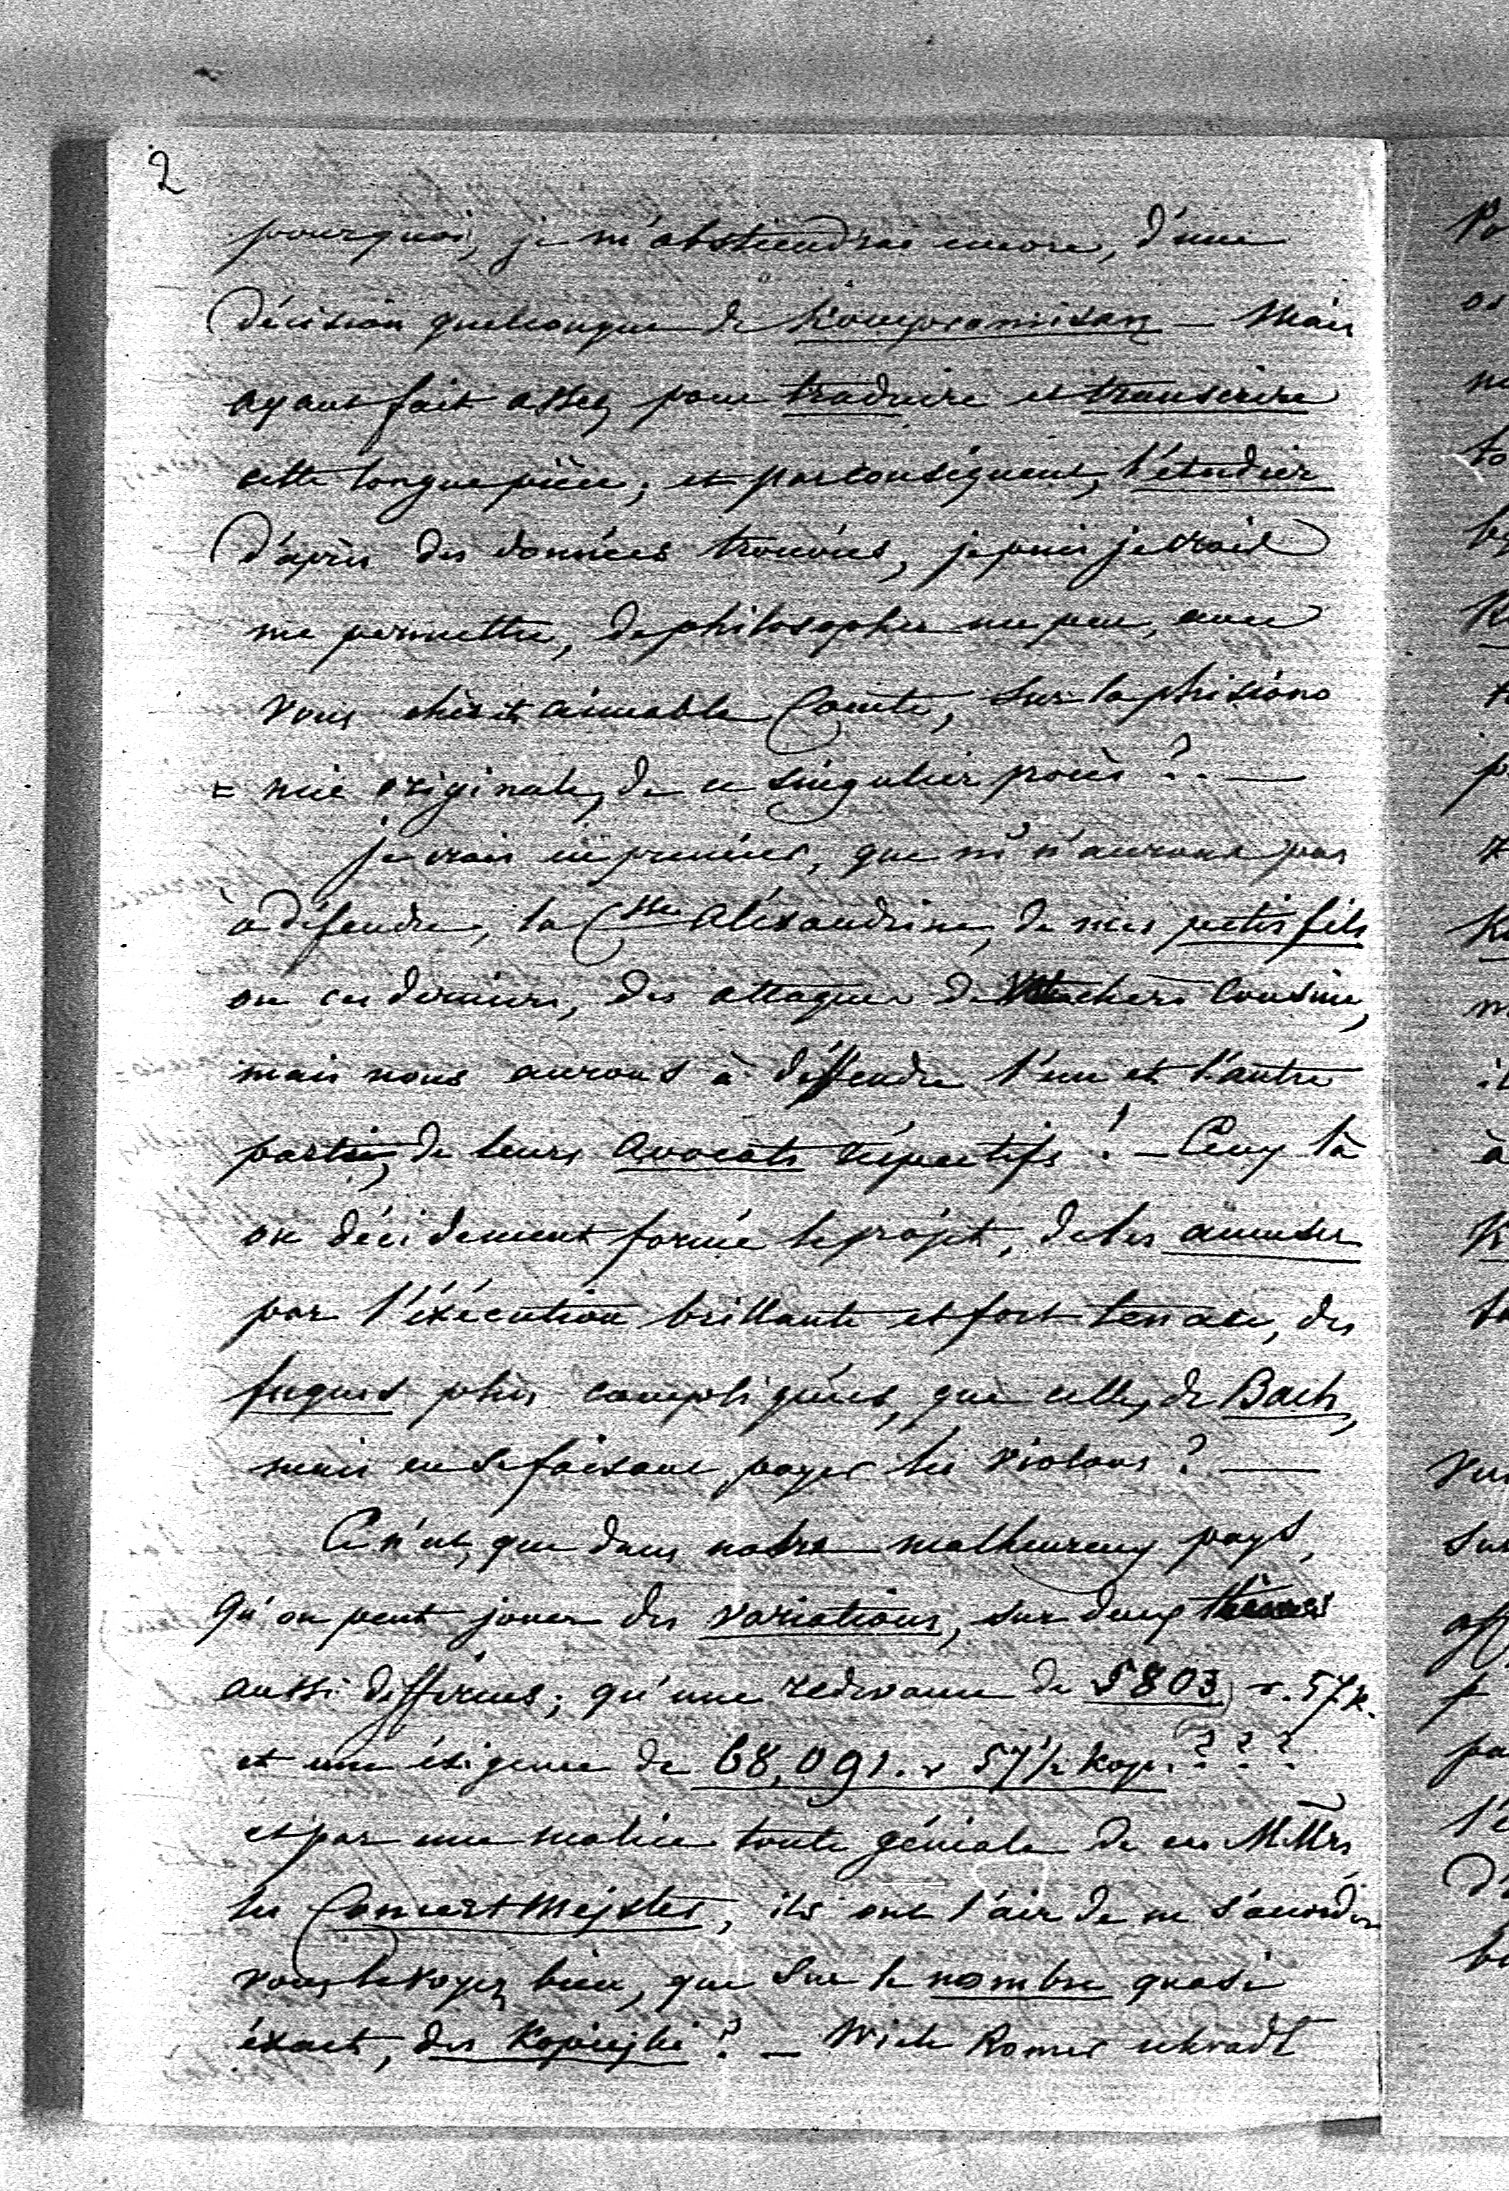 2
pourquoi, je m'abstiendrai encore, d'une
décision quelconque de Kompromisarz — Mais
ayant fait assez pour traduire et transcrire
cette longue pièce, et parconséquent, l'étudier
d'après des données trouvées, je puis je crois
me permettre, de philosopher un peu, avec
vous cher et aimable Comte, sur la phisiono
= mie originale, de ce singulier procès ?. —
je crois en premier, que ns n'aurons pas
à défendre, la Csse Aléxandrine, de mes petits fils
ou ces derniers, des attaques de chers Cousins,
mais nous aurons à déffendre l'une et l'autre
partie, de leurs avocats réspectifs ! — Ceux là
on décidement formé le projèt, de les amuser
par l'éxécution brillante et fort tenace, des
fugues plus compliquées, que celles de Bach,
mais en se faisant payer les violons ? —
Ce n'est, que dans notre malheureux pays,
qu'on peut jouer des variations, sur deux thèmes
aussi différens, qu'une redevance de 5803 r. 57 k.
et une éxigence de 68,091. r 57½ kop. ? ? ?
et par une malice toute géniale de ces MMrs
les ConcertMejster, ils ont l'air de ne s'accorder
vous le voyez bien, que sur le nombre quasi
éxact, des Kopiejki ? — Wiele Romer ukradł